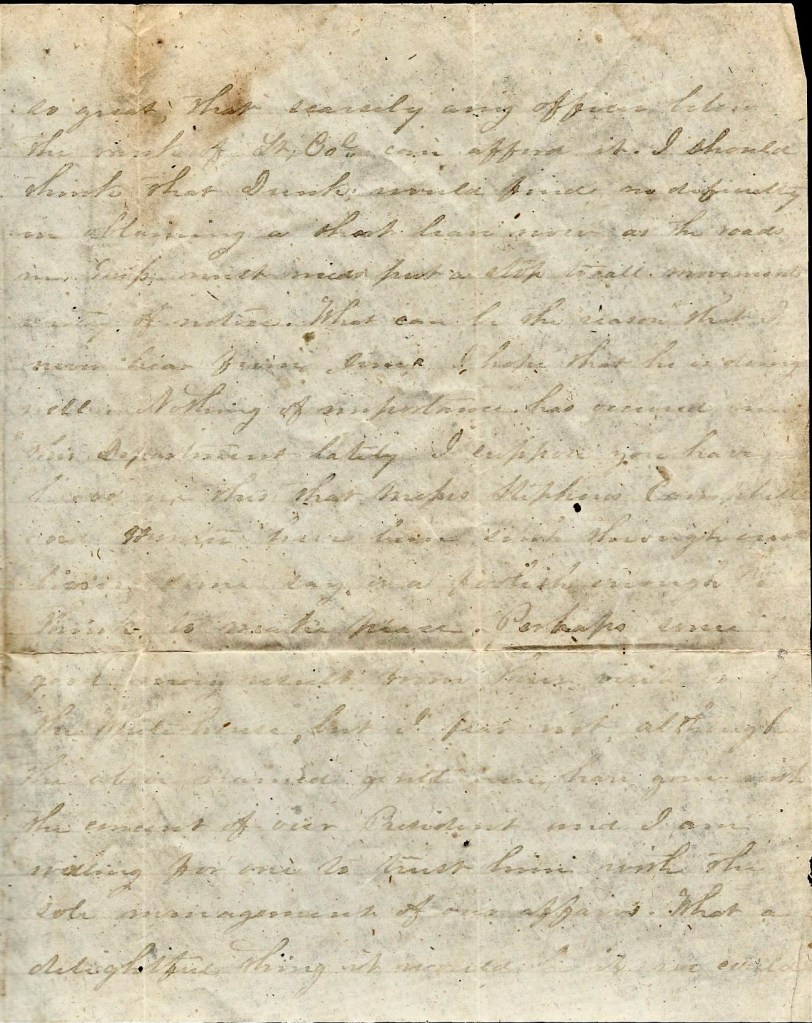 so great, that scarcely any officer below
the rank of Lt, Col. can afford it. I should
think that Dunk. would find no difficulty
in obtaining a short leave now as the roads
in must needs put a stop to all movements
of notice. What can be the reason that I
never hear from I hope that he is doing
well. Nothing of importance has occured in
this Department lately I suppose you have
this that Messrs Stephens, Campbell
and Hunter have been sent through our
lines, some say, on a foolish enough to
think to make peace. Perhaps some
good may result from this visit to
the White house, but I fear not, although
the above named gentlemen, have gone with
the concent of our President and I am
willing for one to trust him with the
sole management of our affairs. What a
delightful thing it would be if we could